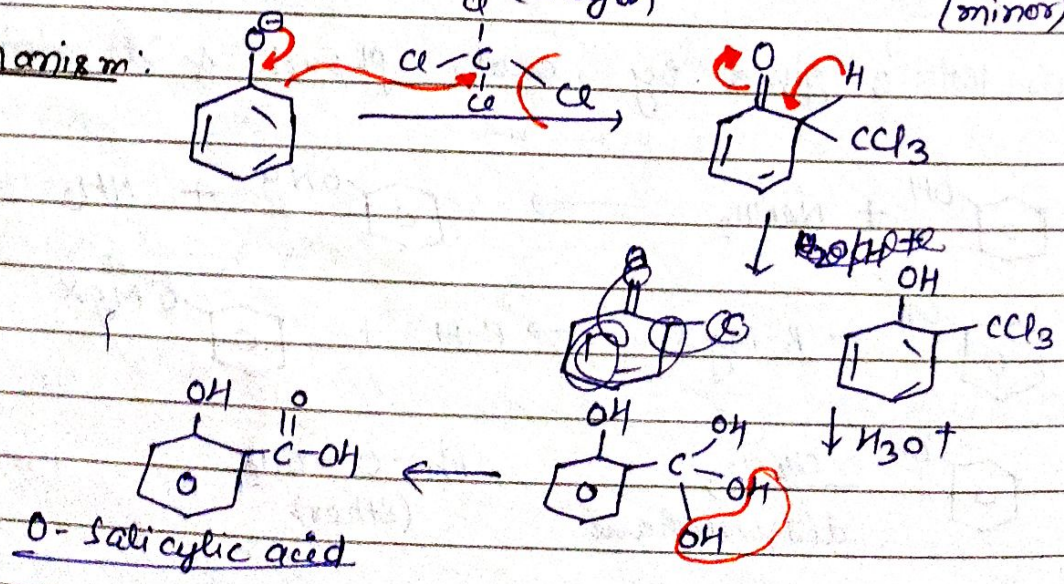 (minor)
anism.
O⊖
Cl
C
Cl
Cl
Cl
O
H
CCl3
OH
CCl3
H3O+
OH
O
C-OH
OH
C
OH
OH
OH
O
O
O- Salicylic acid